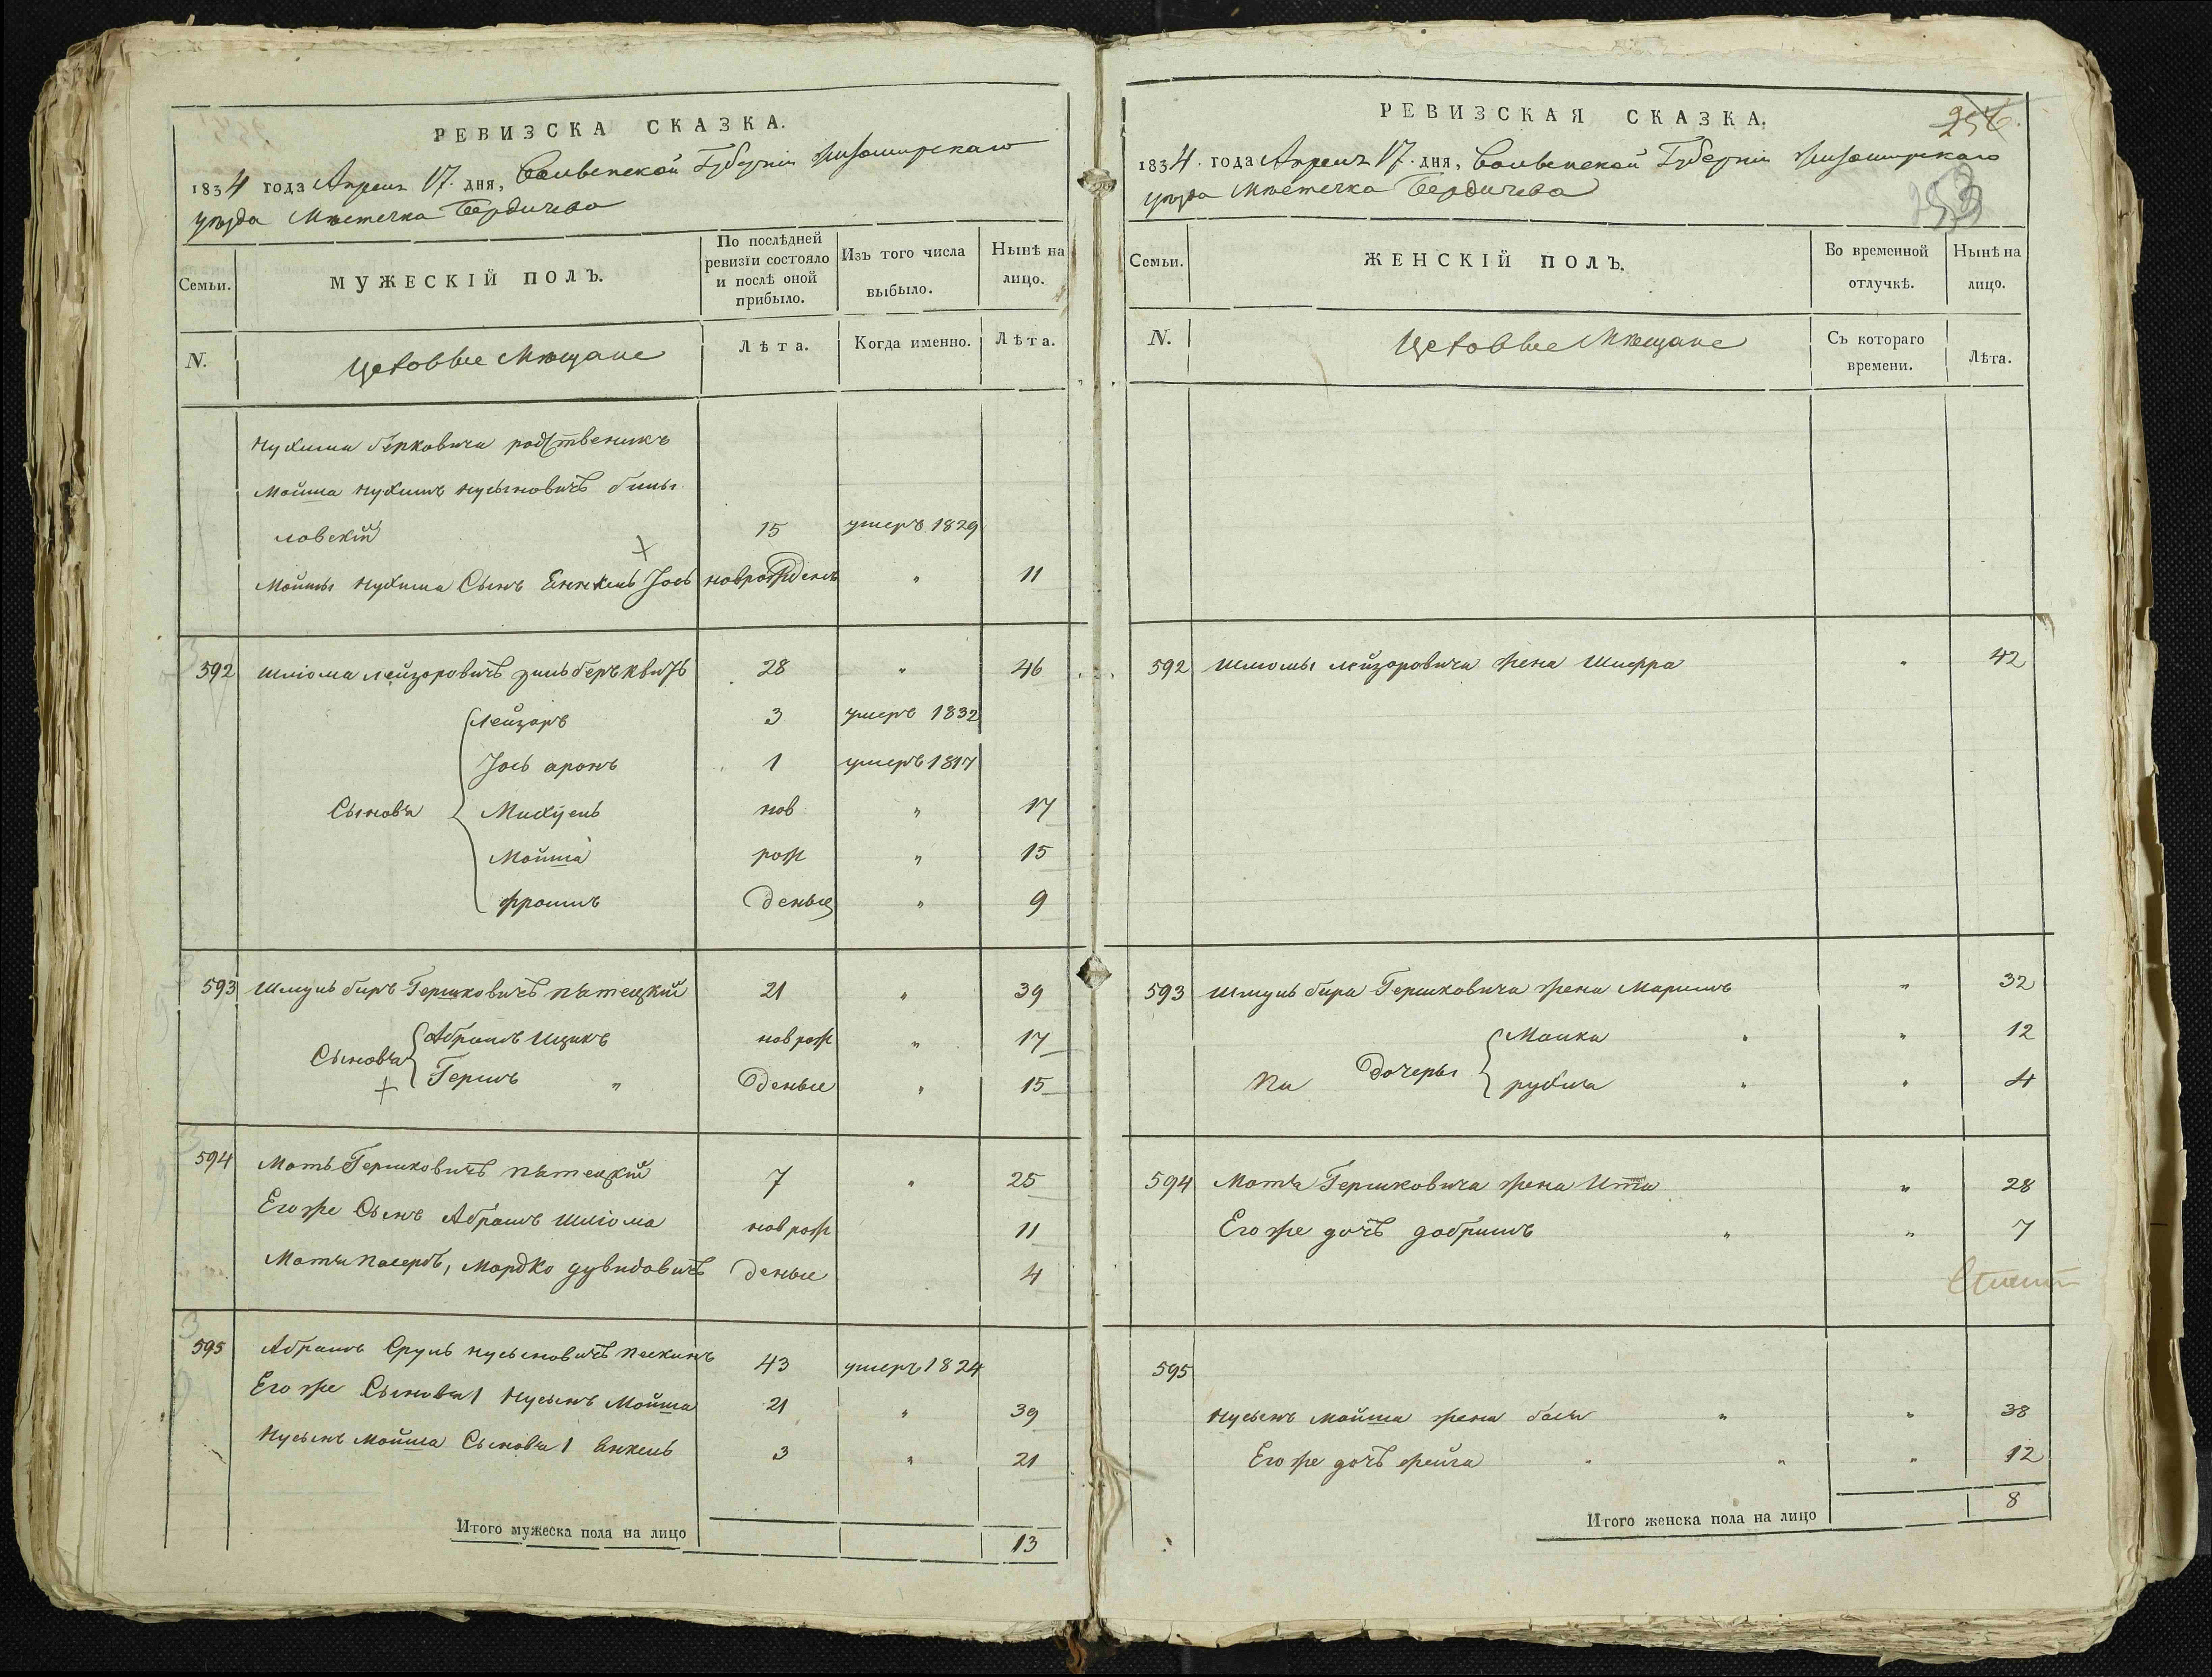 РЕВИЗСКА СКАЗКА.
1834 года Апреля 17. дня, Волынской Губернии Житомирскаго
уѣзда Мѣстечка Бердичева
Семьи.
МУЖЕСКІЙ ПОЛЪ.
По послѣдней ревизіи состояло и послѣ оной прибыло.
Изъ того числа выбыло.
Нынѣ на лицо.
N.
Цеховые Мѣщане
Лѣта.
Когда именно.
Лѣта.
Нухима Берковича родственикъ
Мойша Нухимъ Нусыновичъ
ловскій 15 умеръ 1829
Мойшы Нухима Сынъ Енкель Іось новрожденъ " 11
592 Шліома Лейзоровичъ Зильберъквитъ 28 " 46
Лейзоръ 3 умеръ 1832
Іось Аронъ 1 умеръ 1817
Сыновья Михуель нов " 17
Мойша рож " 15
Фроимъ деные " 9
593 Шмуль Биръ Гершковичъ Пятецкий 21 " 39
Сыновья Абрамъ Ицикъ нов рож " 17
Гершъ " деные " 15
594 Мотъ Гершковичъ Пятецкий 7 " 25
Его же Сынъ Абрамъ Шліома нов рож 11
Моти пасербъ, Мордко Дувидовичъ деные 4
595 Абрамъ Сруль Нусыновичъ Пескинъ 43 умеръ 1824
Его же Сыновья 1 Нусынъ Мойша 21 " 39
Нусынъ Мойша Сыновья 1 Енкель 3 " 21
Итого мужеска пола на лицо 13
РЕВИЗСКАЯ СКАЗКА.
256.
253
1834. года Апреля 17. дня, Волынской Губерніи Житомирскаго
уѣзда Мѣстечка Бердичева
Семьи.
ЖЕНСКІЙ ПОЛЪ.
Во временной отлучкѣ.
Нынѣ на лицо.
N.
Цеховые Мѣщане
Съ котораго времени.
Лѣта.
592 Шліомы Лейзоровича жена Шифра " 42
593 Шмуль Бира Гершковича жена Маримъ " 32
Малка " " 12
Дочеры рухля " " 4
594 Мотя Гершковича жена Ита " 28
Его же дочъ Добришъ " " 7
595
Нусынъ Мойша жена Бася " " 38
Его же дочъ Фейга " " " 12
Итого женска пола на лицо 8